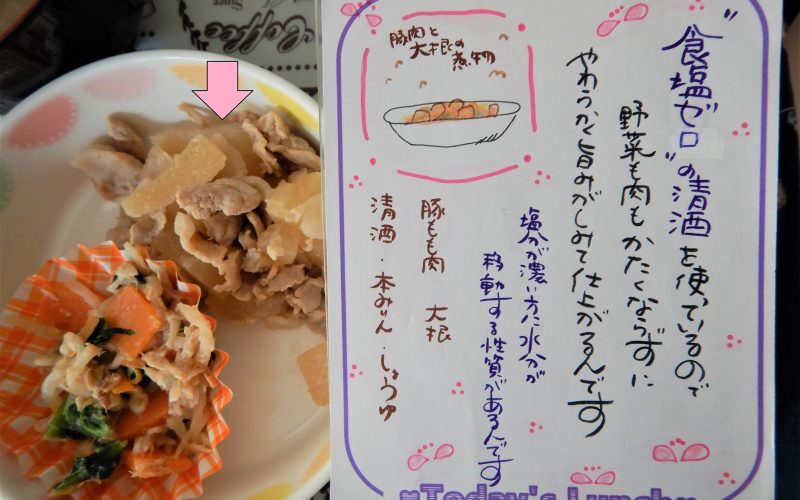 "食塩ゼロ"の清酒を使っているので
野菜も肉もかたくならずに
やわらかく旨みがしみて仕上がるんです
豚肉と
大根の
煮物
塩分が濃い方へ水分が
移動する性質があるんです
豚もも肉 大根
清酒・本みりん・しょうゆ
♥Today's Lunch♥
Coffee
Since